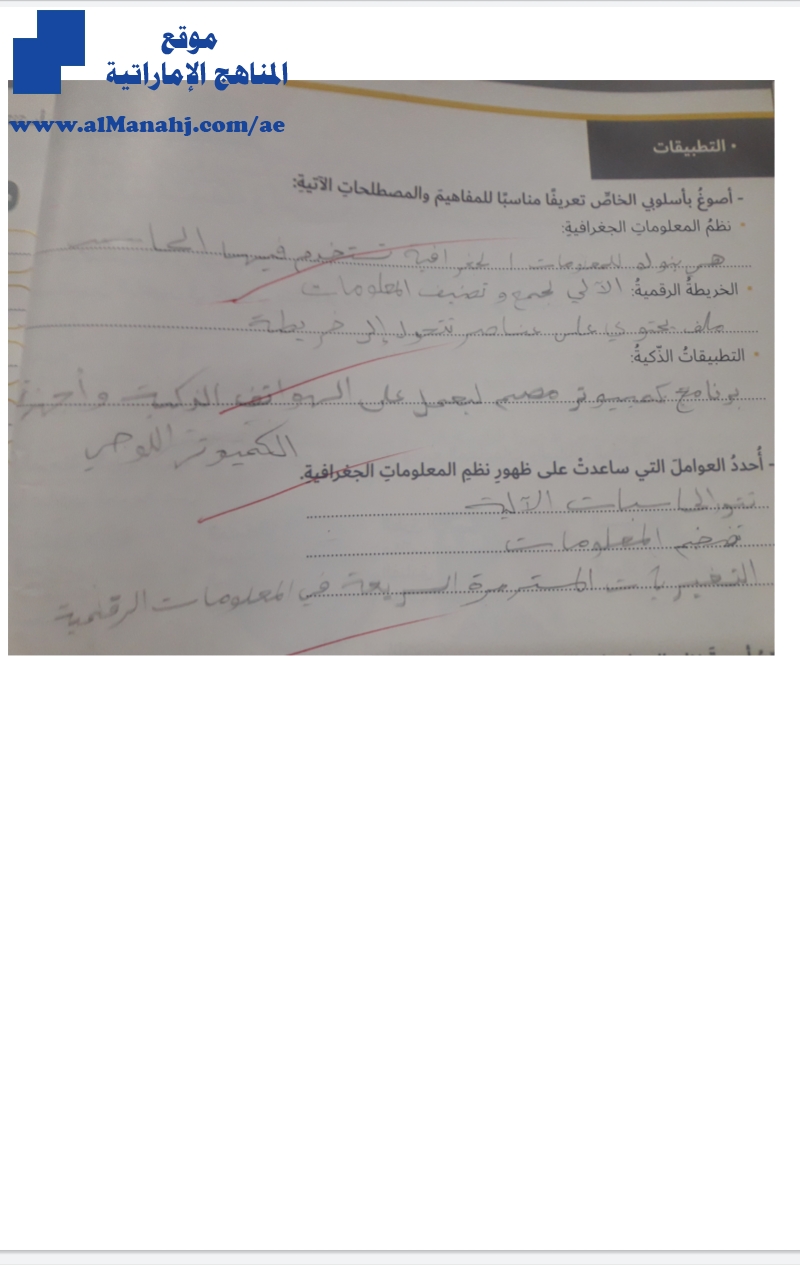 موقع
المناهج الإماراتية
www.alManahj.com/ae
• التطبيقات
- أصوغُ بأسلوبي الخاصِّ تعريفًا مناسبًا للمفاهيمِ والمصطلحاتِ الآتيةِ:
• نظمُ المعلوماتِ الجغرافيةِ:
هي بنوك للمعلومات الجغرافية تستخدم فيها الحاسب
• الخريطةُ الرقميةُ: الآلي لجمع و تصنيف المعلومات
ملف يحتوي على عناصر تتحول إلى خريطة
• التطبيقاتُ الذّكيةُ:
برنامج كمبيوتر مصمم ليعمل على الهواتف الذكية و أجهزة
الكمبيوتر اللوحي
- أُحددُ العواملَ التي ساعدتْ على ظهورِ نظمِ المعلوماتِ الجغرافيةِ.
الحاسبات الآلية
تضخم المعلومات
التغيرات المستمرة السريعة في المعلومات الرقمية